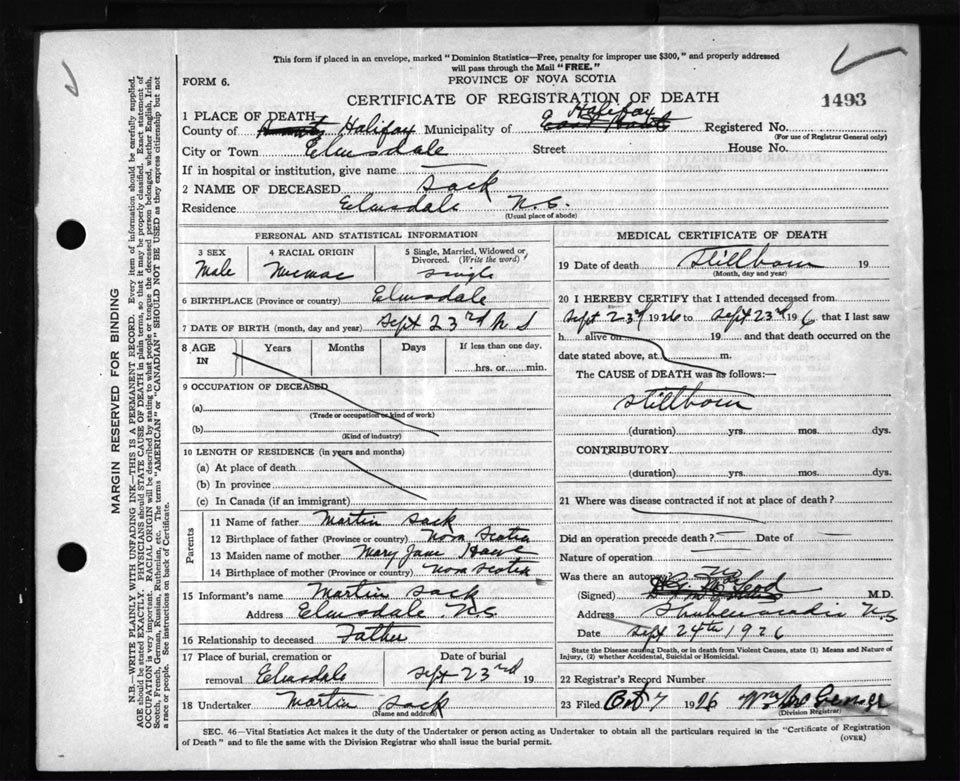 This form if placed in an envelope, marked "Dominion Statistics—Free, penalty for improper use $300," and properly addressed
will pass through the Mail "FREE."
FORM 6.
PROVINCE OF NOVA SCOTIA
CERTIFICATE OF REGISTRATION OF DEATH
1493
1 PLACE OF DEATH
Halifax
County of Halifax Municipality of Registered No.
(For use of Registrar General only)
City or Town Elmsdale Street House No.
If in hospital or institution, give name
2 NAME OF DECEASED Sack
Residence Elmsdale N.S.
(Usual place of abode)
PERSONAL AND STATISTICAL INFORMATION
3 SEX
Male
4 RACIAL ORIGIN
Micmac
5 Single, Married, Widowed or
Divorced. (Write the word)
single
6 BIRTHPLACE (Province or country) Elmsdale
7 DATE OF BIRTH (month, day and year) Sept 23rd N S
8 AGE
IN
Years
Months
Days
If less than one day,
hrs. or min.
9 OCCUPATION OF DECEASED
(a)
(Trade or occupation or kind of work)
(b)
(Kind of industry)
10 LENGTH OF RESIDENCE (in years and months)
(a) At place of death
(b) In province
(c) In Canada (if an immigrant)
Parents
11 Name of father Martin Sack
12 Birthplace of father (Province or country) Nova Scotia
13 Maiden name of mother Mary Jane
14 Birthplace of mother (Province or country) Nova Scotia
15 Informant's name Martin Sack
Address Elmsdale N.S
16 Relationship to deceased Father
17 Place of burial, cremation or
removal Elmsdale
Date of burial
Sept 23rd 19
18 Undertaker Martin Sack
(Name and address)
MEDICAL CERTIFICATE OF DEATH
19 Date of death Stillborn 19
(Month, day and year)
20 I HEREBY CERTIFY that I attended deceased from
Sept 23d 1926 to Sept 23d 1926 that I last saw
h alive on 19 and that death occurred on the
date stated above, at m.
The CAUSE of DEATH was as follows:—
Stillborn
(duration) yrs. mos. dys.
CONTRIBUTORY
(duration) yrs. mos. dys.
21 Where was disease contracted if not at place of death?
Did an operation precede death? Date of
Nature of operation
Was there an autopsy No
(Signed) M.D.
Address Shubenacadie N.S
Date Sept 24th 1926
State the Disease causing Death, or in death from Violent Causes, state (1) Means and Nature of
Injury, (2) whether Accidental, Suicidal or Homicidal.
22 Registrar's Record Number
23 Filed Oct 7 1926
(Division Registrar)
SEC. 46—Vital Statistics Act makes it the duty of the Undertaker or person acting as Undertaker to obtain all the particulars required in the "Certificate of Registration
of Death" and to file the same with the Division Registrar who shall issue the burial permit.
(OVER)
MARGIN RESERVED FOR BINDING
N.B.—WRITE PLAINLY WITH UNFADING INK—THIS IS A PERMANENT RECORD. Every item of information should be carefully supplied.
AGE should be stated EXACTLY. PHYSICIANS should STATE CAUSE OF DEATH in plain terms, so that it may be properly classified. Exact statement of
OCCUPATION is very important. RACIAL ORIGIN will be described by stating to what people or tongue the deceased person belonged, whether English, Irish,
Scotch, French, German, Russian, Ruthenian, etc. The terms "AMERICAN" or "CANADIAN" SHOULD NOT BE USED as they express citizenship but not
a race or people. See instructions on back of Certificate.